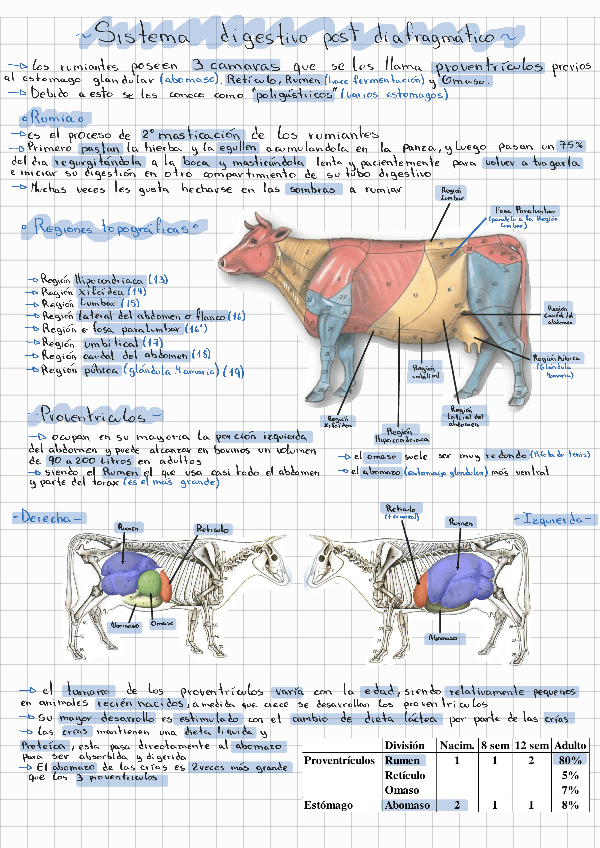 ~ Sistema digestivo post diafragmático ~
→ Los rumiantes poseen 3 camaras que se les llama proventriculos previos
al estomago glandular (abomaso). Reticulo, Rumen (hace fermentación) y Omaso.
→ Debido a esto se les conoce como "poligástricos" (varios estomagos)
Rumia
→ es el proceso de 2º masticación de los rumiantes
→ Primero pastan la hierba y la egullen acumulandola en la panza, y luego pasan un 75%
del dia regurgitándola a la boca y masticándola lenta y pacientemente para volver a tragarla
e iniciar su digestión en otro compartimiento de su tubo digestivo
→ Muchas veces les gusta hecharse en las sombras a rumiar
Región
lumbar
Fosa Paralumbar
(paralela a la Región
lumbar)
Regiones topográficas
→ Región Hipocondriaca (13)
→ Región Xifoidea (14)
→ Región Lumbar (15)
→ Región lateral del abdomen o flanco (16)
→ Región o fosa paralumbar (16')
→ Región umbilical (17)
→ Región caudal del abdomen (18)
→ Región púbica (glándula mamaria) (19)
Región
caudal del
abdomen
Región Púbica
(Glándula
Mamaria)
Región
umbilical
Región
Xifoidea
Región
Hipocondriaca
Región
lateral del
abdomen
- Proventriculos -
→ ocupan en su mayoria la porción izquierda
del abdomen y puede alcanzar en bovinos un volumen
de 90 a 200 litros en adultos
→ siendo el Rumen el que usa casi todo el abdomen
y parte del torax (es el más grande)
→ el omaso suele ser muy redondo (Pelota de tenis)
→ el abomaso (estomago glandular) más ventral
- Derecha -
Rumen
Reticulo
Abomaso
Omaso
Reticulo
(+ craneal)
Rumen
- Izquierda -
Abomaso
→ el tamaño de los proventriculos varía con la edad, siendo relativamente pequeños
en animales recién nacidos, a medida que crece se desarrollan los proventriculos
→ Su mayor desarrollo es estimulado con el cambio de dieta láctea por parte de las crías
→ Las crías mantienen una dieta liquida y
Proteica, esta pasa directamente al abomaso
para ser absorbida y digerida
→ El abomaso de las crías es 2 veces más grande
que los 3 proventriculos
División Nacim. 8 sem 12 sem Adulto
Proventrículos Rumen 1 1 2 80%
Retículo 5%
Omaso 7%
Estómago Abomaso 2 1 1 8%